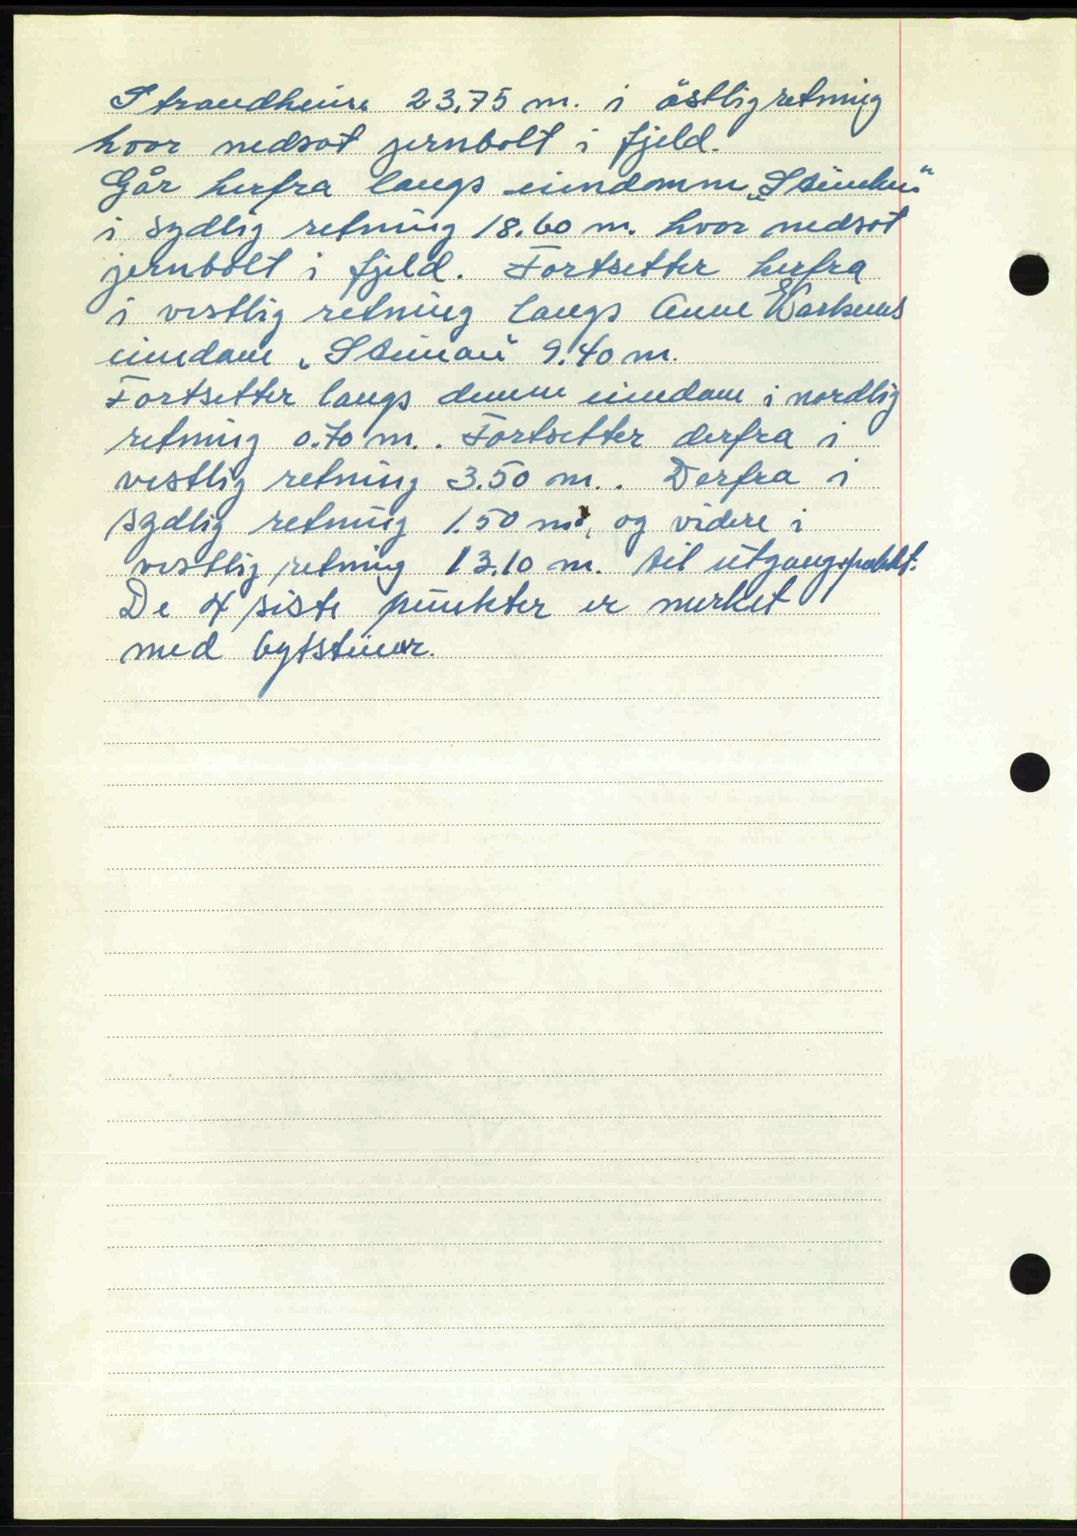 Strandheim 23.75 m. i östlig retning
hvor nedsat jernbolt i fjeld.
Går herfra langs eiendommen
i sydlig retning 18.60 m. hvor nedsat
jernbolt i fjeld. Fortsetter herfra
i vestlig retning langs Anne
eiendom 9.40 m.
Fortsetter langs denne eiendom i nordlig
retning 0.70 m. Fortsetter derfra i
vestlig retning 3.50 m. Derfra i
sydlig retning 1.50 m., og videre i
vestlig retning 13.10 m. til utgangspunkt.
De 4 siste punkter er merket
med bytsteiner.